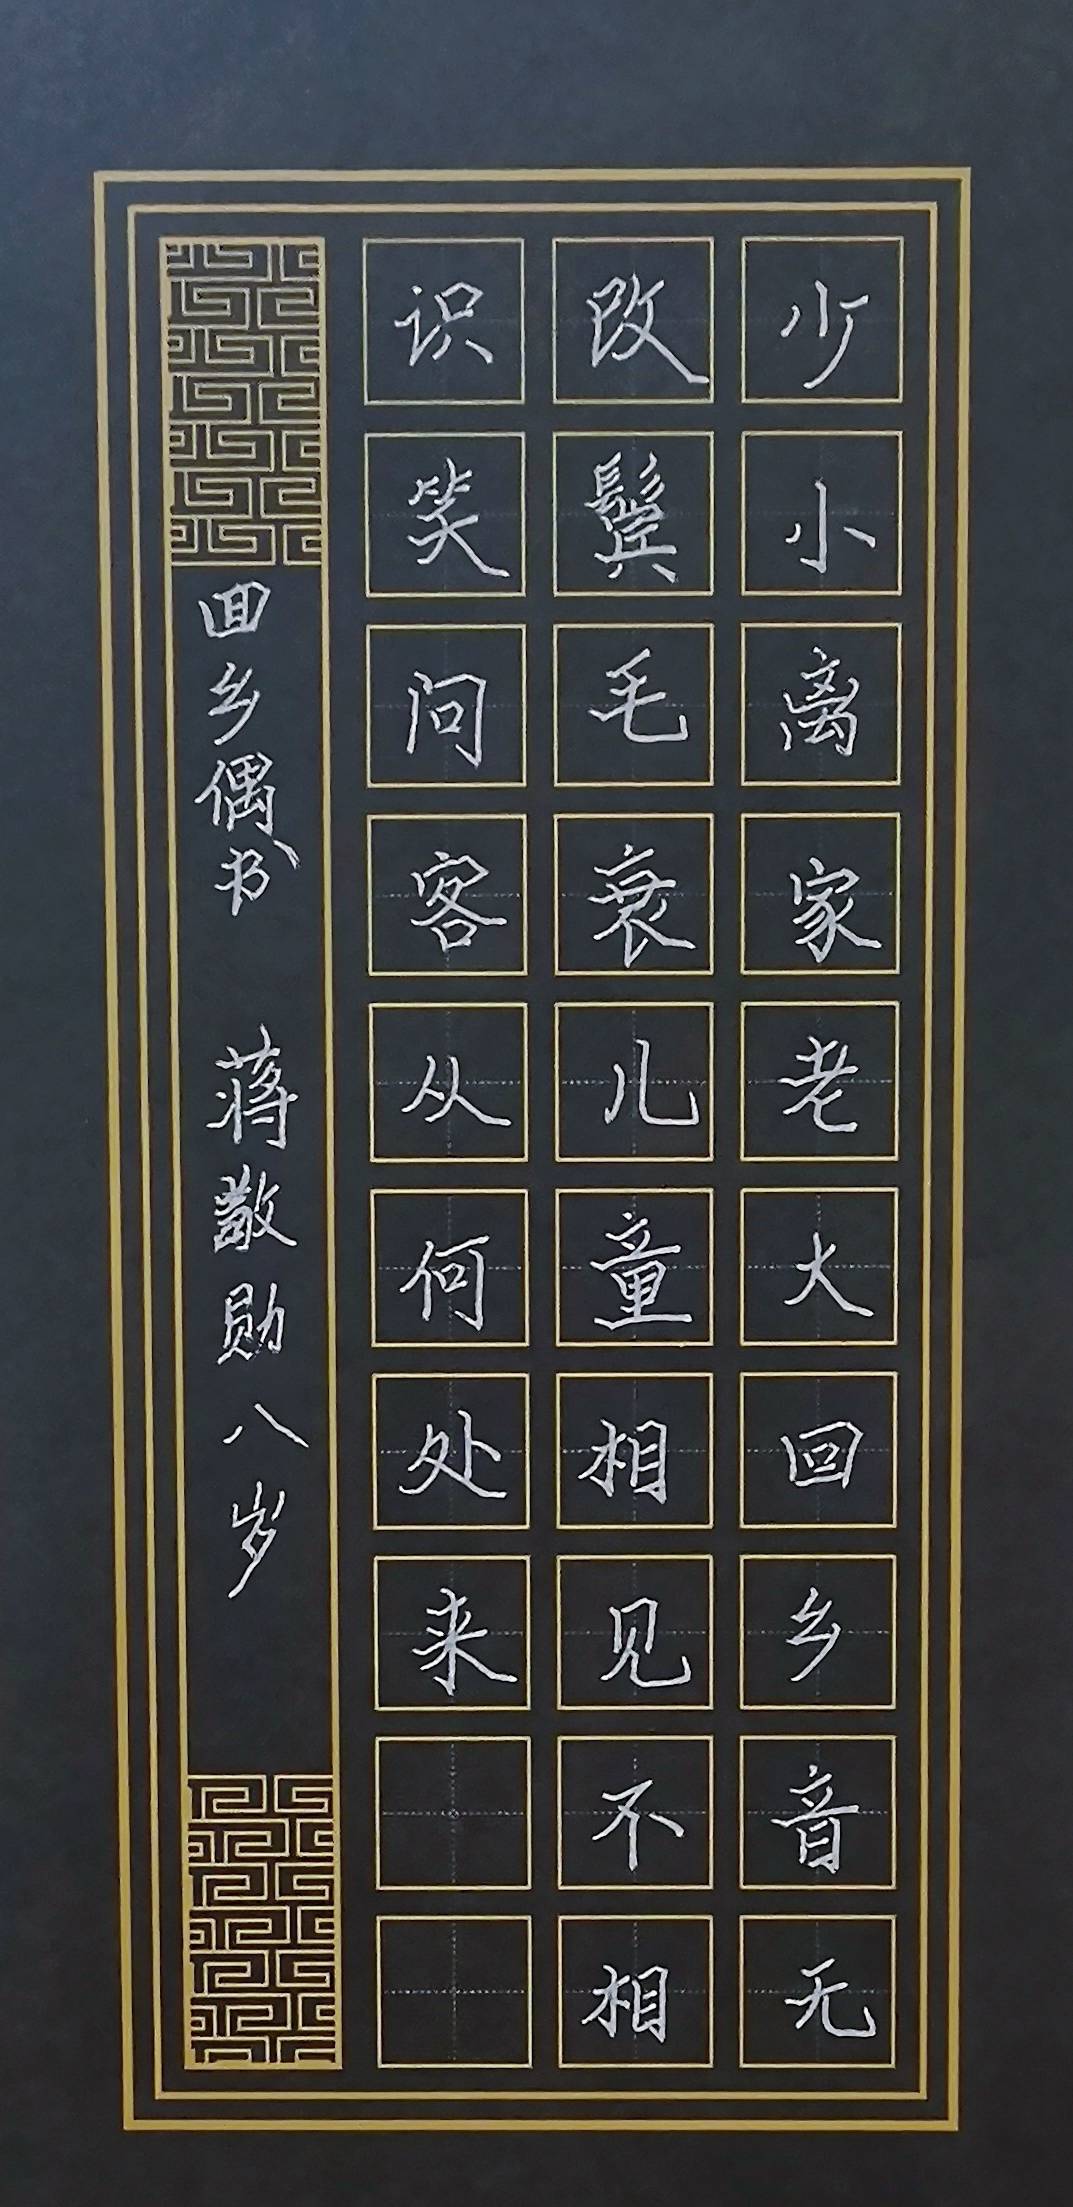 少小离家老大回乡音无
改鬓毛衰儿童相见不相
识笑问客从何处来
回乡偶书 蒋敬勋八岁